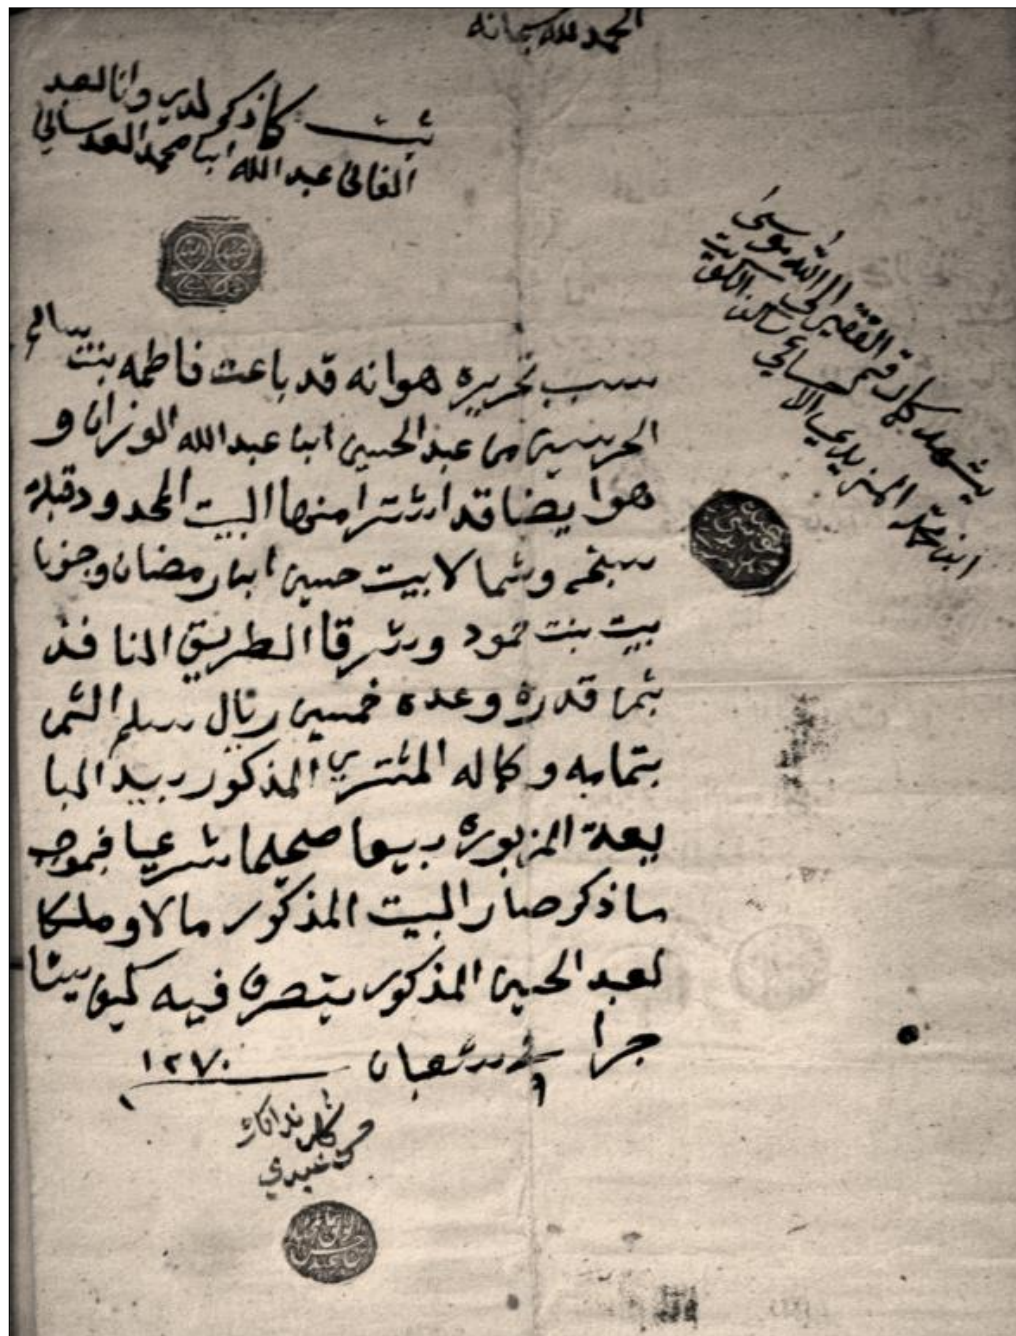 الحمد لله سبحانه
ثبت كما ذكر لدي وانا العبد
الفاني عبدالله ابن محمد العدساني
يشهد كما رقم الفقير الى الله موسى
ابن محمد المزيدي الاحسائي ساكن الكويت
سبب تحريره هوانه قد باعت فاطمه بنت سالم
من عبد الحسين ابن عبد الله الوزان و
هو ايضا قد اشترا منها البيت المحدود قبلة
وشمالا بيت حسين ابن رمضان وجنوبا
بيت بنت حمود وشرقا الطريق النافذ
بثمن قدره وعده خمسين ريال سلم الثمن
بتمامه وكماله المشتري المذكور بيد البا
يعة المزبوره بيعا صحيحا شرعيا فبموجب
ما ذكر صار البيت المذكور مالا وملكا
لعبد الحسين المذكور يتصرف فيه كيف يشا
جرا في ٩ شعبان ١٢٧٠